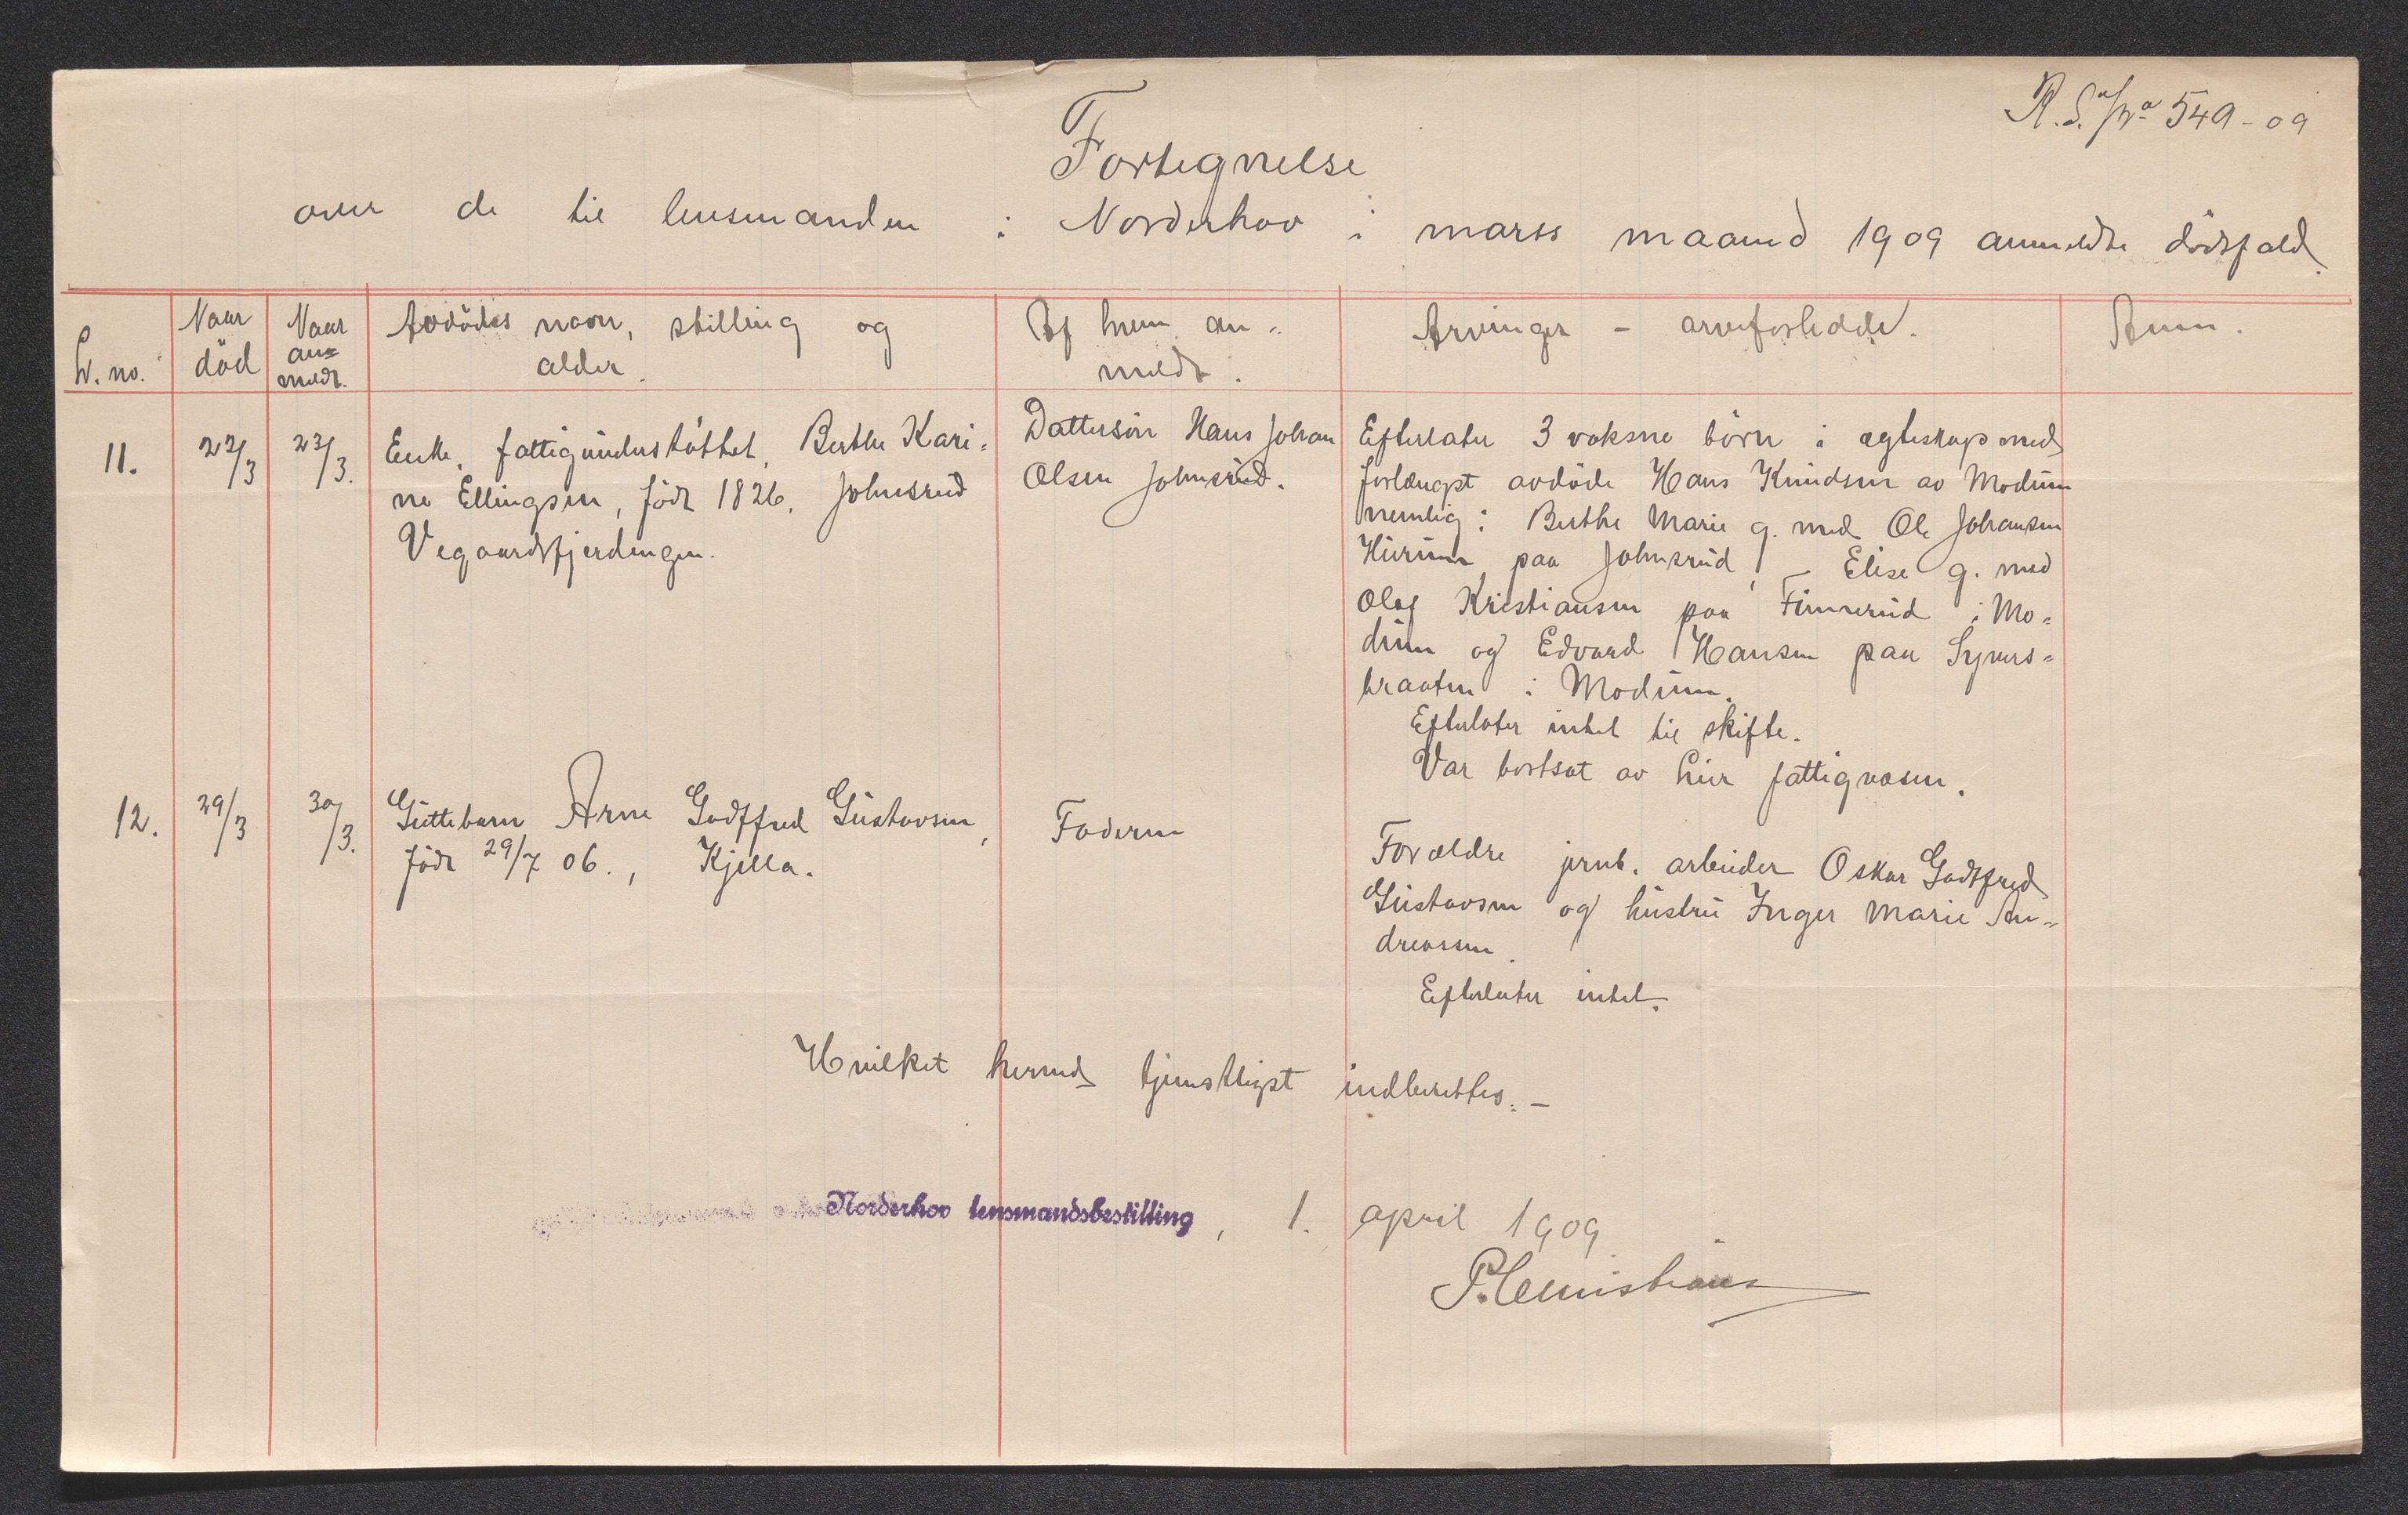 R. S. 549-09
Fortegnelse
over de til lensmanden i Norderhov i mars maaned 1909 anmeldte dödsfald.
L. no.
Naar död
Naar an= meldt.
Avdödes navn, stilling og alder.
Af hvem an= meldt.
Arvinger - arveforholde.
Anm.
11.
22/3
23/3.
Enke, fattigunderstöttet, Berthe Kari=
ne Ellingsen, född 1826, Johnsrud
Vegaardsfjerdingen.
Dattersön Hans Johan
Olsen Johnsrud.
Efterlater 3 voksne börn i egteskap med
forlængst avdöde Hans Knudsen av Modum
nemlig: Berthe Marie g. med Ole Johansen
Hurum paa Johnsrud, Elise g. med
Olaf Kristiansen paa Finnerud i Mo=
dum og Edvard Hansen paa Syvers=
braaten i Modum.
Efterlater intet til skifte.
Var bortsat av hier fattigvæsen.
12.
29/3
30/3.
Guttebarn Arne Godtfred Gustavsen,
född 29/7 06., Kjella.
Faderen
Forældre jernb. arbeider Oskar Godtfred
Gustavsen og hustru Inger Marie An=
dreassen.
Efterlater intet.
Hvilket herved tjenstligst indberettes. -
Norderhov lensmandsbestilling, 1. april 1909
P. Christians